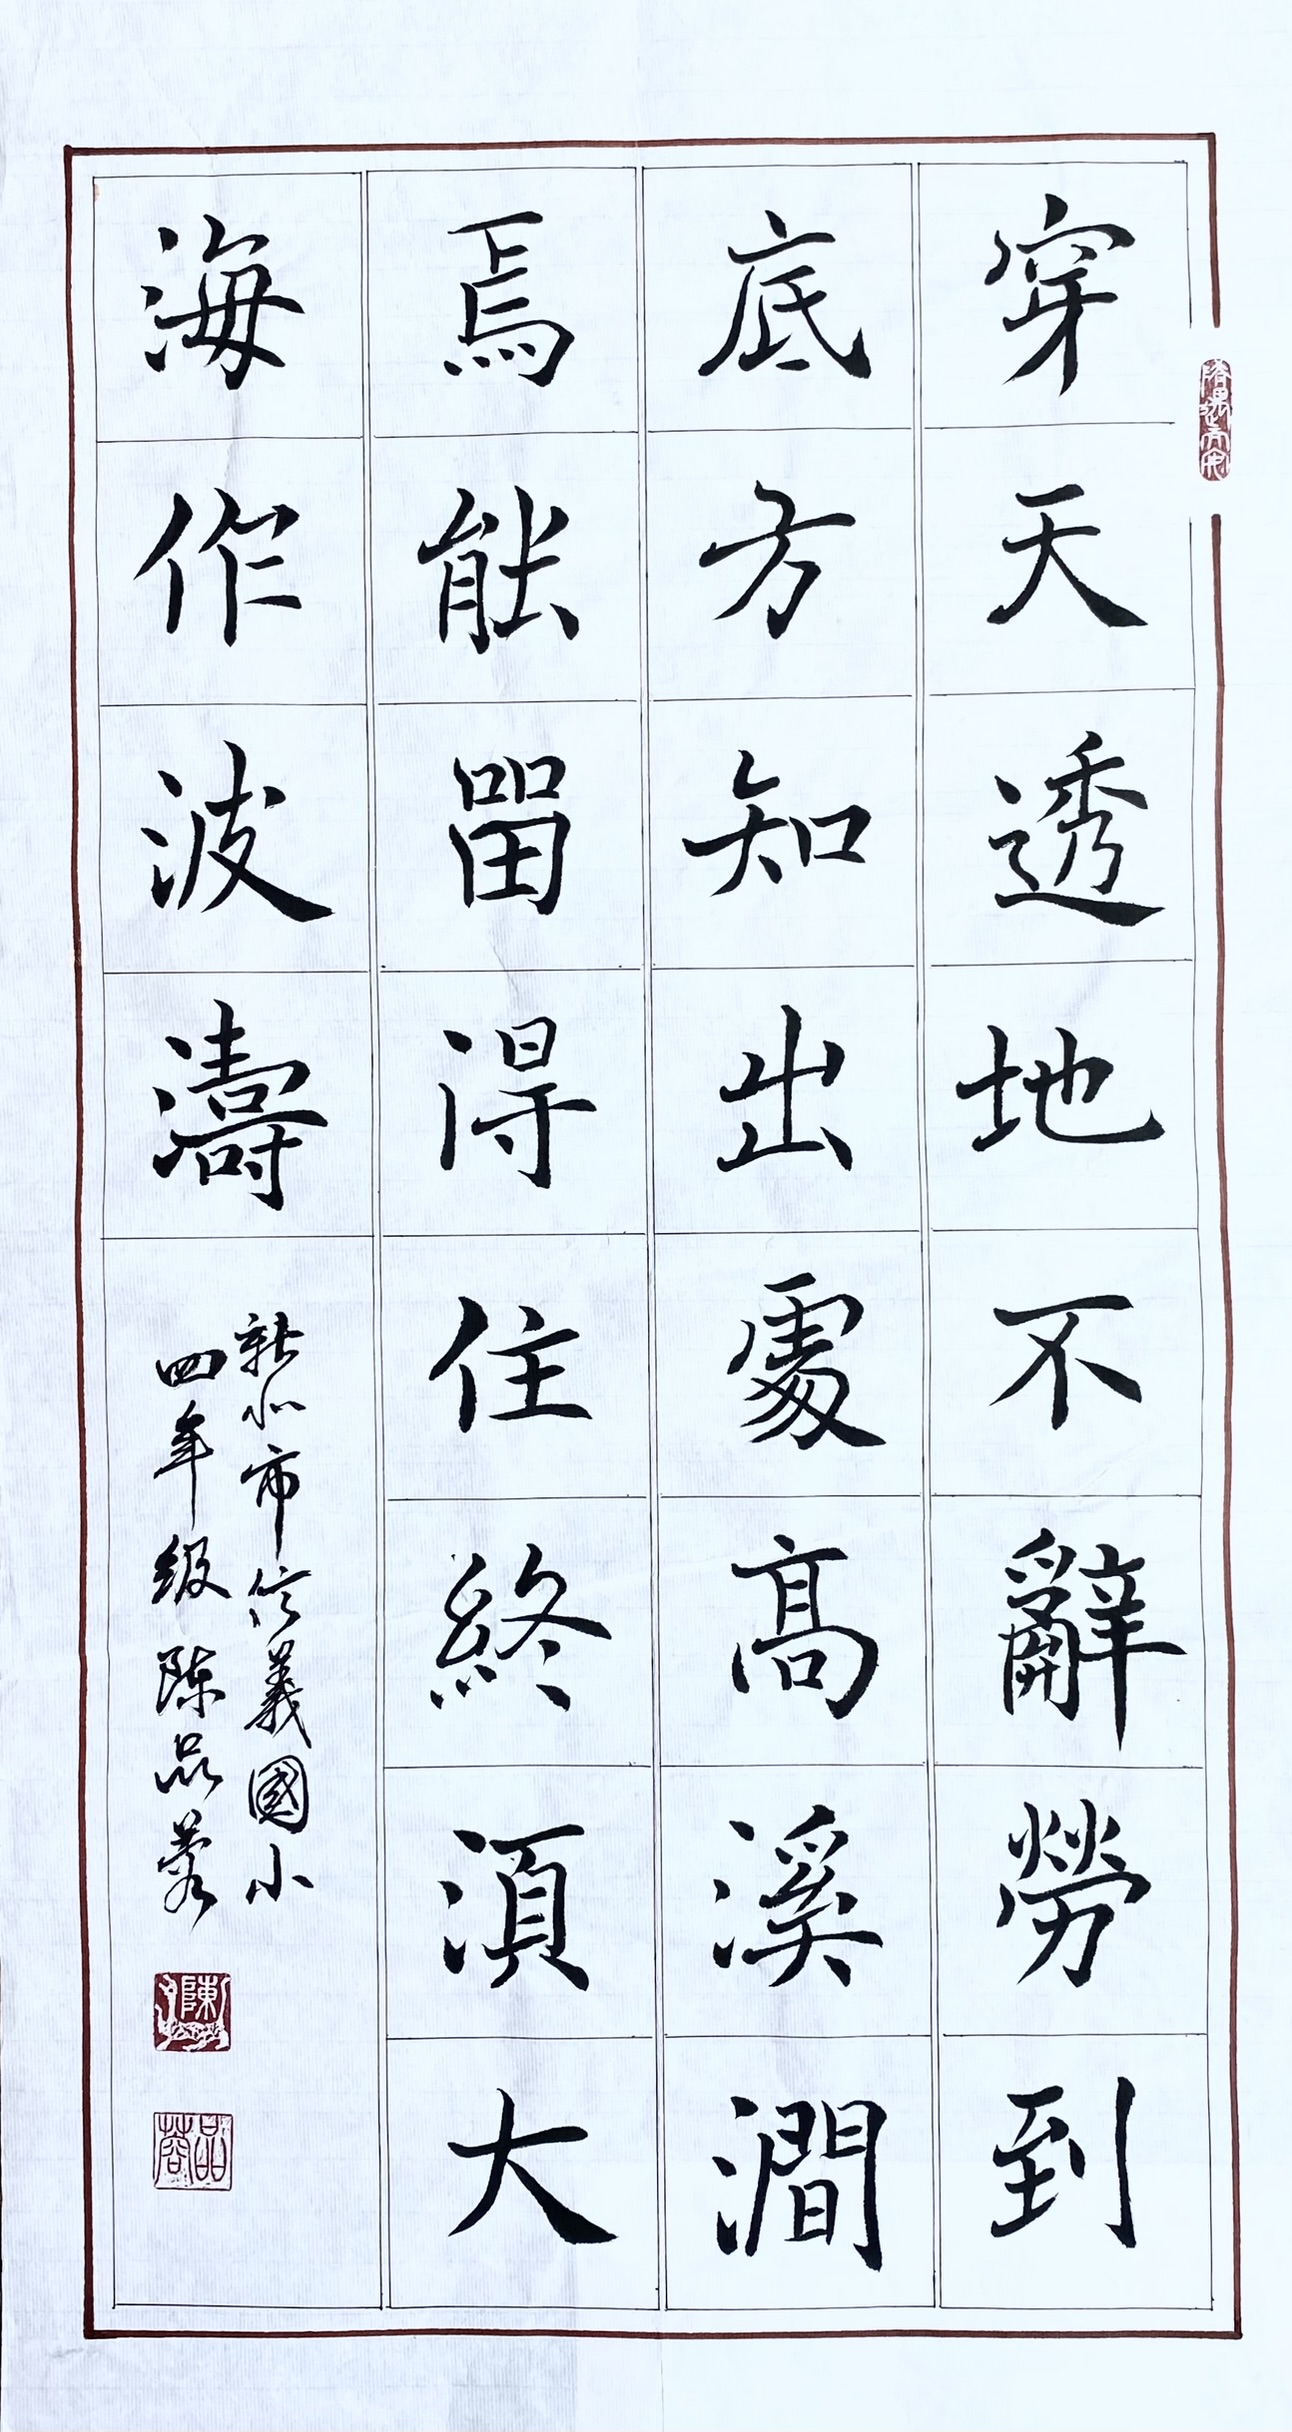 穿天透地不辭勞到
底方知出處高溪澗
焉能留得住終須大
海作波濤
新北市信義國小
四年級陳品蓉
陳
品蓉